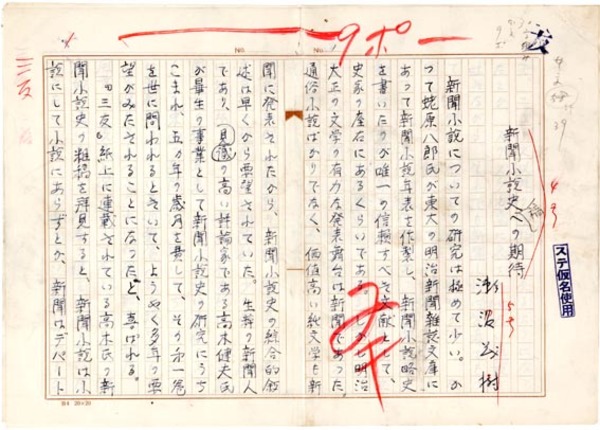 9ポ
三友
友
4号
5号
ステ仮名使用
新聞小説史への期待
渋沢茂樹
新聞小説についての研究は極めて少い。か
つて蛯原八郎氏が東大の明治新聞雑誌文庫に
あって新聞小説年表を作製し、新聞小説略史
を書いたのが唯一の信頼すべき文献として、
史家の座右にあるくらいである。しかし明治
大正の文学の有力な発表舞台は新聞であった。
通俗小説ばかりでなく、価値高い純文学も新
聞に発表されたから、新聞小説史の綜合的叙
述は早くから要望されていた。生粋の新聞人
であり、見識の高い評論家である高木健夫氏
が畢生の事業として新聞小説史の研究にうち
こまれ、五カ年の歳月を費して、その第一巻
を世に問われるときいて、ようやく多年の要
望がみたされることになったと、喜ばれる。
『三友』紙上に連載されている高木氏の新
聞小説史の雑稿を拝見すると、新聞小説は小
説にして小説にあらずとか、新聞はデパート
B4 20×20